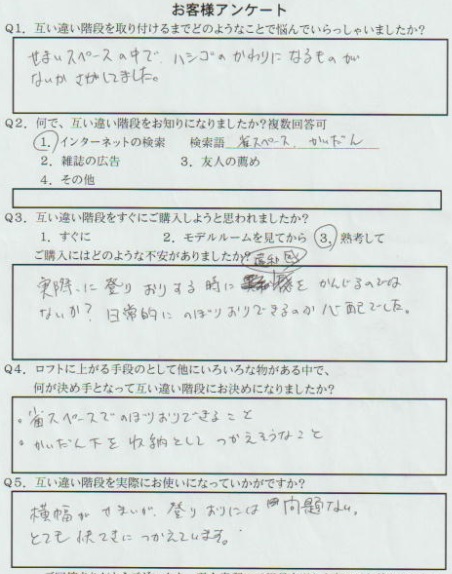 お客様アンケート
Q1．互い違い階段を取り付けるまでどのようなことで悩んでいらっしゃいましたか？
せまいスペースの中で、ハシゴのかわりになるものが
ないか さがしてました。
Q2．何で、互い違い階段をお知りになりましたか？複数回答可
1．インターネットの検索　検索語 省スペース、かいだん
2．雑誌の広告　3．友人の薦め
4．その他
Q3．互い違い階段をすぐにご購入しようと思われましたか？
1．すぐに　2．モデルルームを見てから　3．熟考して
ご購入にはどのような不安がありましたか？
違和感
実際に登りおりする時に を かんじるのでは
ないか？ 日常的に のぼりおりできるのか心配でした。
Q4．ロフトに上がる手段のとして他にいろいろな物がある中で、
何が決め手となって互い違い階段にお決めになりましたか？
・省スペースでのぼりおりできること
・かいだん下を収納として つかえそうなこと
Q5．互い違い階段を実際にお使いになっていかがですか？
横幅が せまいが、登りおりには 問題ない。
とても 快てきに つかえています。